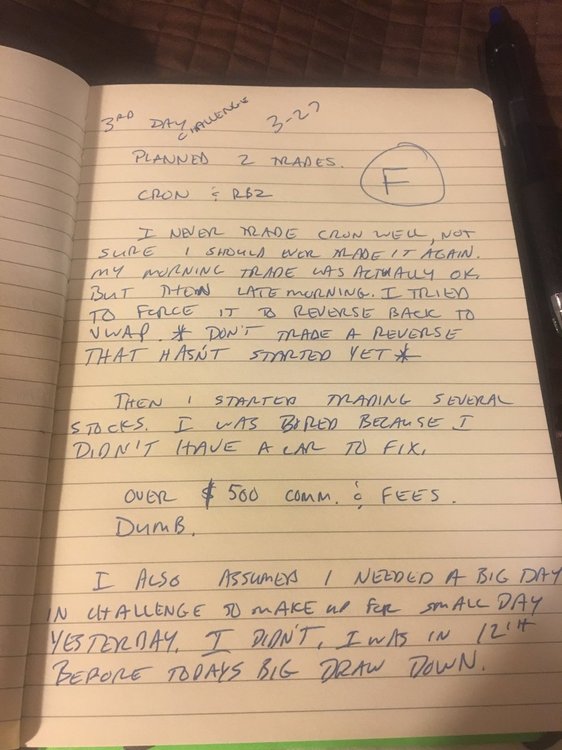 3RD DAY CHALLENGE 3-27
PLANNED 2 TRADES.
F
CRON & RBZ
I NEVER TRADE CRON WELL, NOT
SURE I SHOULD EVER TRADE IT AGAIN.
MY MORNING TRADE WAS ACTUALLY OK.
BUT THEN LATE MORNING. I TRIED
TO FORCE IT TO REVERSE BACK TO
VWAP. * DON'T TRADE A REVERSE
THAT HASN'T STARTED YET *
THEN I STARTED TRADING SEVERAL
STOCKS. I WAS BORED BECAUSE I
DIDN'T HAVE A CAR TO FIX.
OVER $500 COMM. & FEES.
DUMB.
I ALSO ASSUMED I NEEDED A BIG DAY
IN CHALLENGE TO MAKE UP FOR SMALL DAY
YESTERDAY. I DIDN'T, I WAS IN 12TH
BEFORE TODAYS BIG DRAW DOWN.